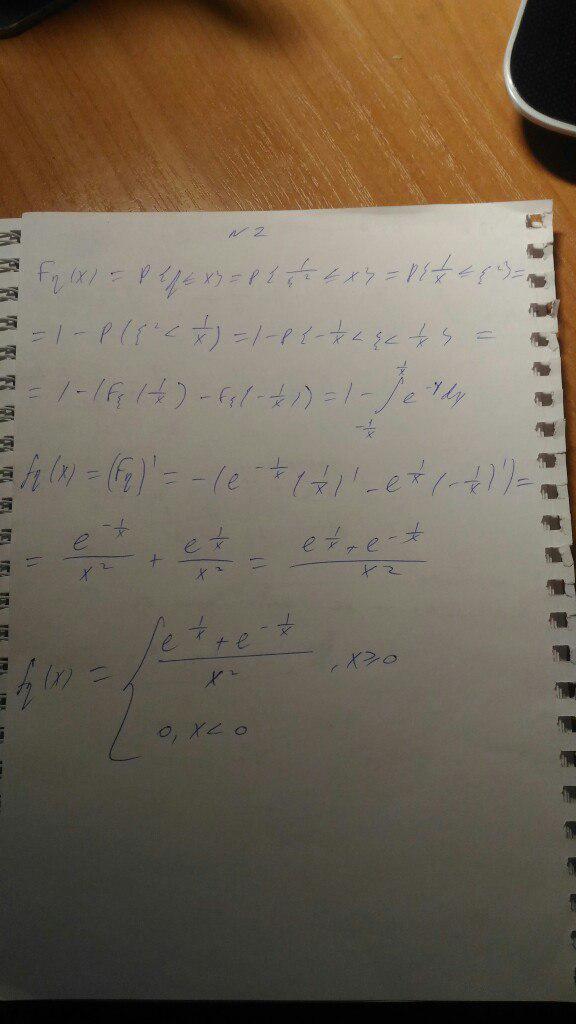 N2
F_η(x) = P{η ≤ x} = P{1/ξ² ≤ x} = P{1/x ≤ ξ²} =
= 1 - P(ξ² < 1/x) = 1 - P{-1/x < ξ < 1/x} =
= 1 - (F_ξ(1/x) - F_ξ(-1/x)) = 1 - ∫_{-1/x}^{1/x} e^{-y} dy
f_η(x) = (F_η)' = -(e^{-1/x} (1/x)' - e^{1/x} (-1/x)') =
= e^{-1/x}/x² + e^{1/x}/x² = (e^{1/x} + e^{-1/x})/x²
f_η(x) = { (e^{1/x} + e^{-1/x})/x², x ≥ 0
0, x < 0